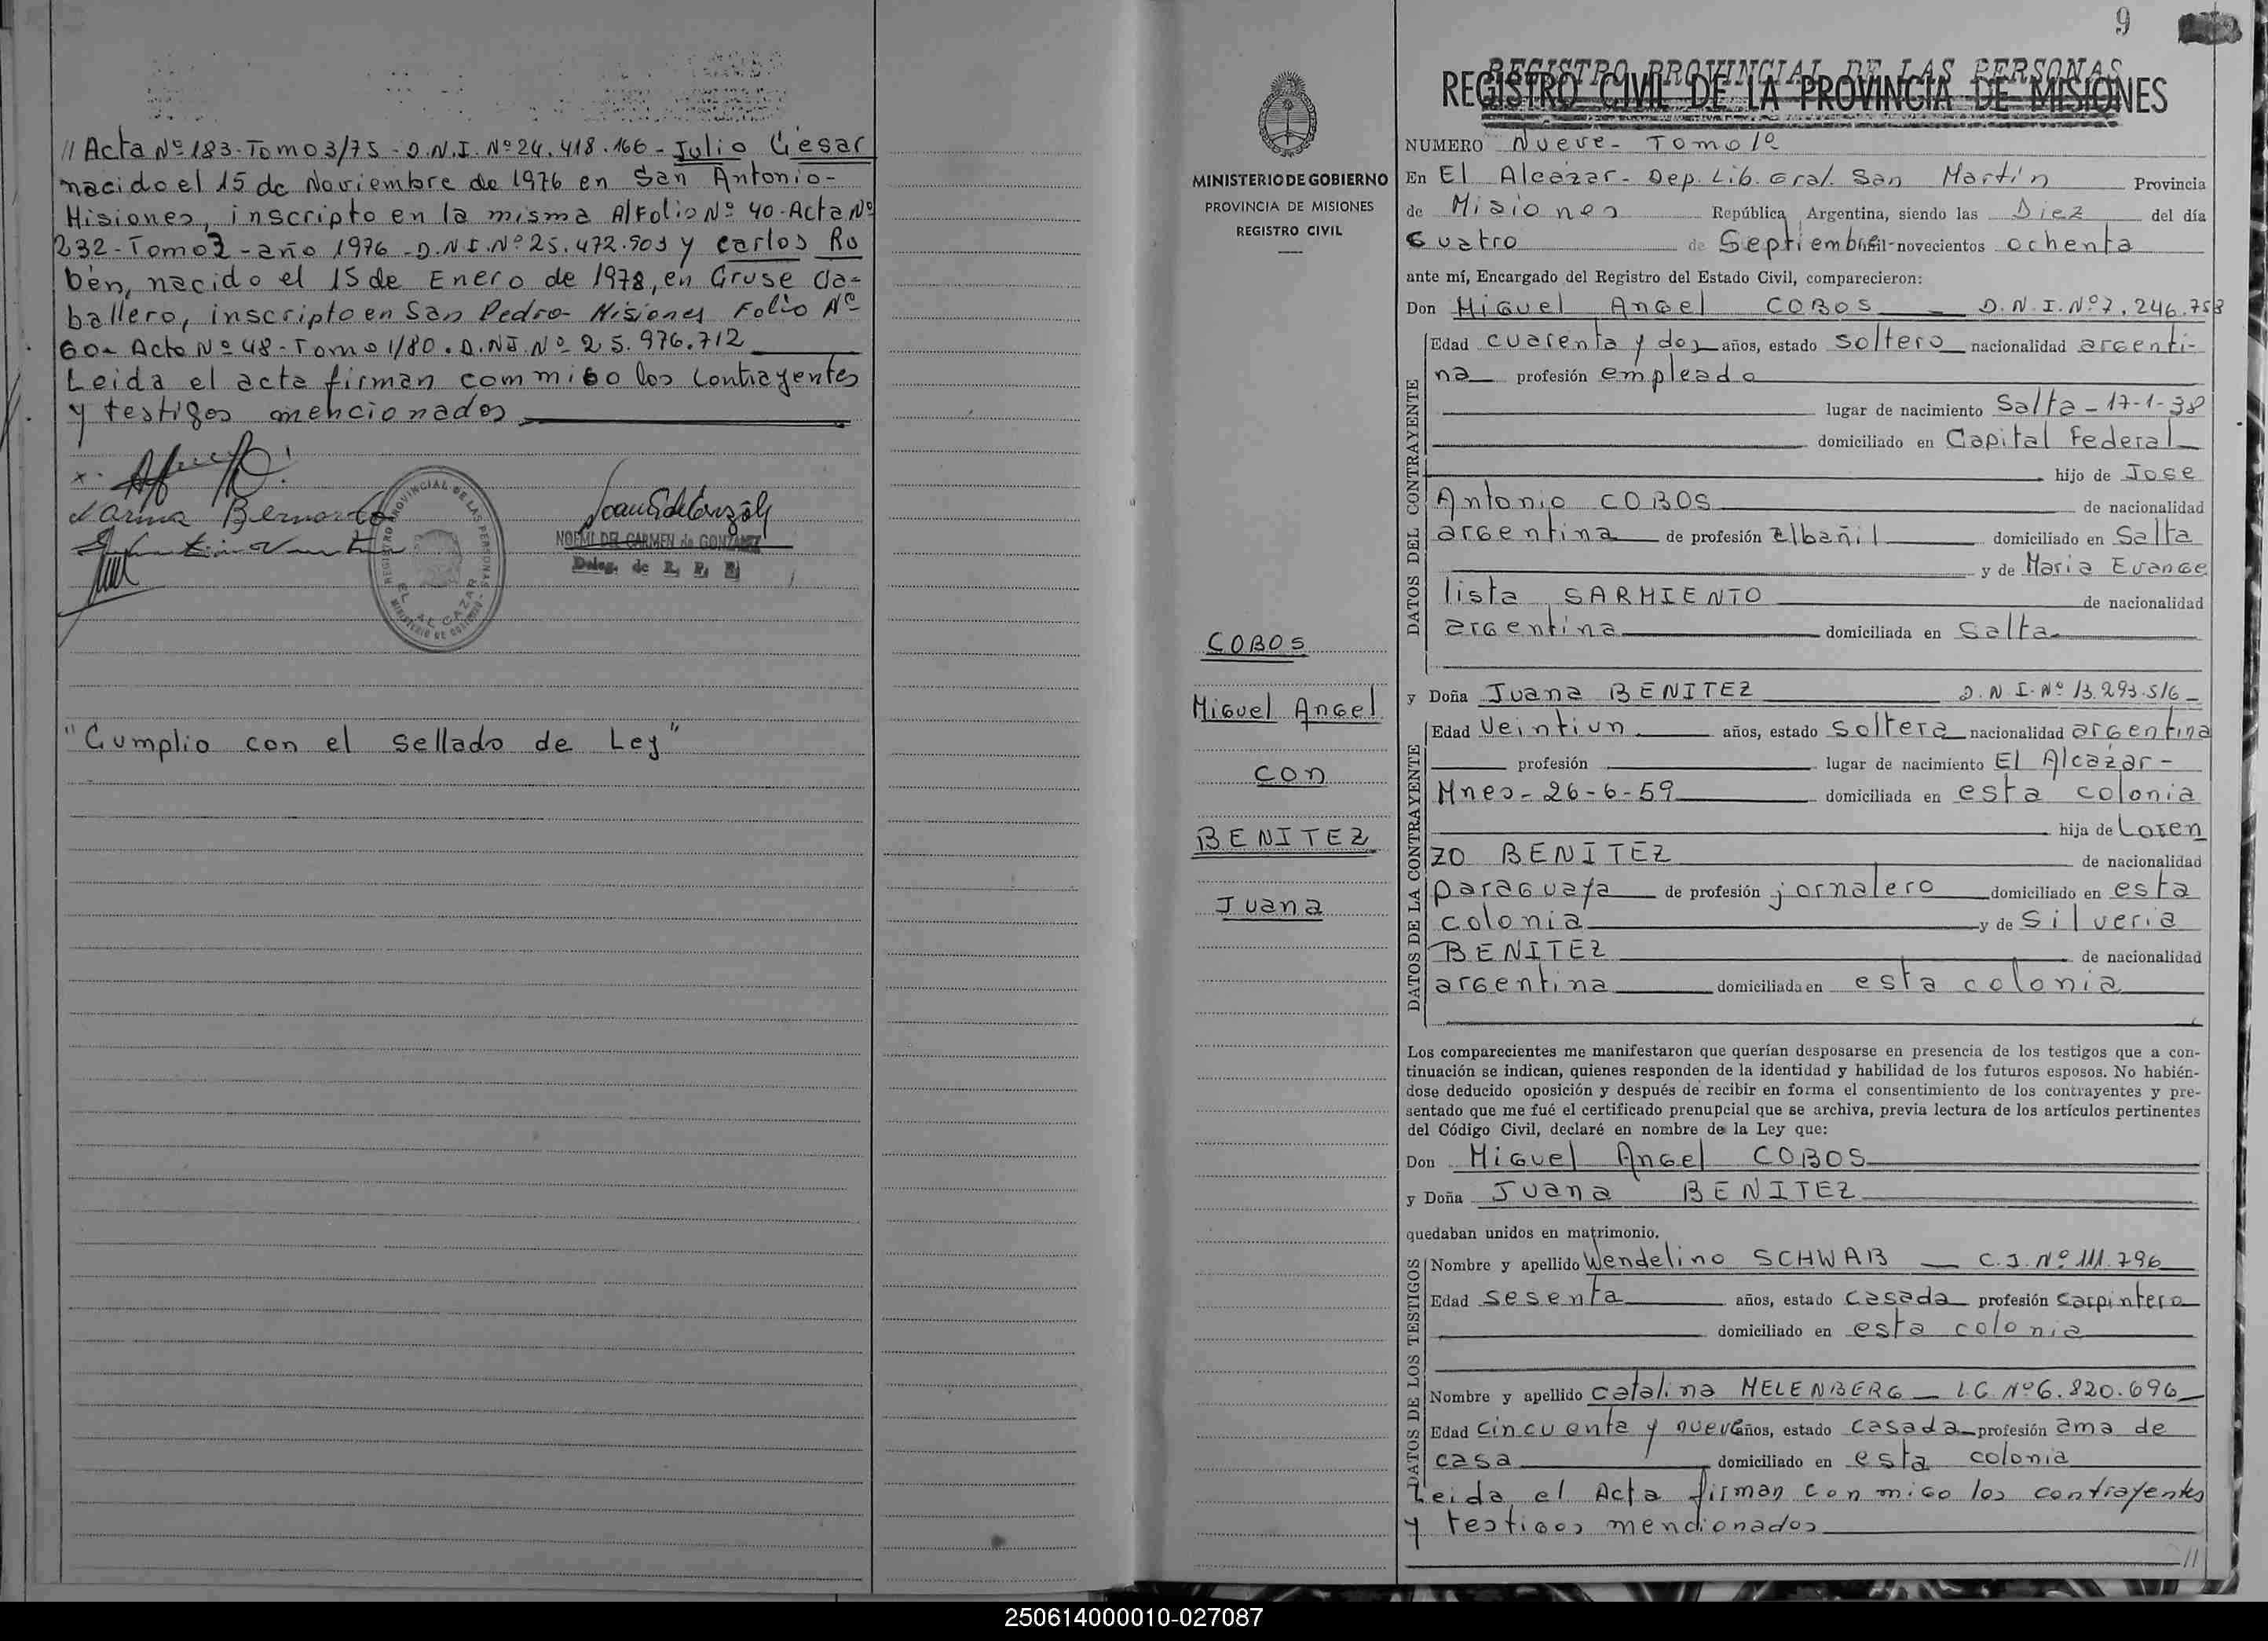 // Acta Nº 183-Tomo 3/75 - D.N.I. Nº 24.418.166 - Julio Cesar
nacido el 15 de Noviembre de 1976 en San Antonio-
Misiones, inscripto en la misma Al Folio Nº 40-Acta Nº
232-Tomo 2-año 1976-D.N.I. Nº 25.472.503 y Carlos Ru
bén, nacido el 15 de Enero de 1978, en Cruse Ca-
ballero, inscripto en San Pedro-Misiones Folio Nº
60-Acta Nº 48-Tomo 1/80. D.N.I. Nº 25.976.712
Leida el acta firman commigo los contrayentes
y testigos mencionados
Marina Bernardo
REGISTRO PROVINCIAL DE LAS PERSONAS
EL ALCAZAR
MINISTERIO DE GOBIERNO
NOEMI DEL CARMEN de GONZALEZ
Deleg. de R. P. P.
"Cumplio con el sellado de Ley"
9
REGISTRO PROVINCIAL DE LAS PERSONAS
REGISTRO CIVIL DE LA PROVINCIA DE MISIONES
MINISTERIO DE GOBIERNO
PROVINCIA DE MISIONES
REGISTRO CIVIL
COBOS
Miguel Angel
con
BENITEZ
Juana
NUMERO Nueve- Tomo 1º
En El Alcázar- Dep. Lib. Gral. San Martín Provincia
de Misiones República Argentina, siendo las Diez del día
Cuatro de Septiembre mil-novecientos ochenta
ante mí, Encargado del Registro del Estado Civil, comparecieron:
Don Miguel Angel COBOS D.N.I. Nº 7.246.758
DATOS DEL CONTRAYENTE
Edad cuarenta y dos años, estado soltero nacionalidad argenti-
na profesión empleado
lugar de nacimiento Salta-17-1-38
domiciliado en Capital Federal
hijo de Jose
Antonio COBOS de nacionalidad
argentina de profesión albañil domiciliado en Salta
y de Maria Evange
lista SARMIENTO de nacionalidad
argentina domiciliada en Salta
y Doña Juana BENITEZ D.N.I. Nº 13.293.516-
DATOS DE LA CONTRAYENTE
Edad Veintiun años, estado soltera nacionalidad argentina
profesión lugar de nacimiento El Alcázar-
Mnes-26-6-59 domiciliada en esta colonia
hija de Loren
zo BENITEZ de nacionalidad
paraguaya de profesión jornalero domiciliado en esta
colonia y de Silveria
BENITEZ de nacionalidad
argentina domiciliada en esta colonia
Los comparecientes me manifestaron que querían desposarse en presencia de los testigos que a con-
tinuación se indican, quienes responden de la identidad y habilidad de los futuros esposos. No habién-
dose deducido oposición y después de recibir en forma el consentimiento de los contrayentes y pre-
sentado que me fué el certificado prenupcial que se archiva, previa lectura de los artículos pertinentes
del Código Civil, declaré en nombre de la Ley que:
Don Miguel Angel COBOS
y Doña Juana BENITEZ
quedaban unidos en matrimonio.
DATOS DE LOS TESTIGOS
Nombre y apellido Wendelino SCHWAB C.I. Nº 111.796
Edad sesenta años, estado casada profesión carpintero
domiciliado en esta colonia
Nombre y apellido Catalina MELENBERG L.C. Nº 6.820.696
Edad cincuenta y nueve años, estado casada profesión ama de
casa domiciliado en esta colonia
Leida el Acta firman conmigo los contrayentes
y testigos mencionados
//
250614000010-027087